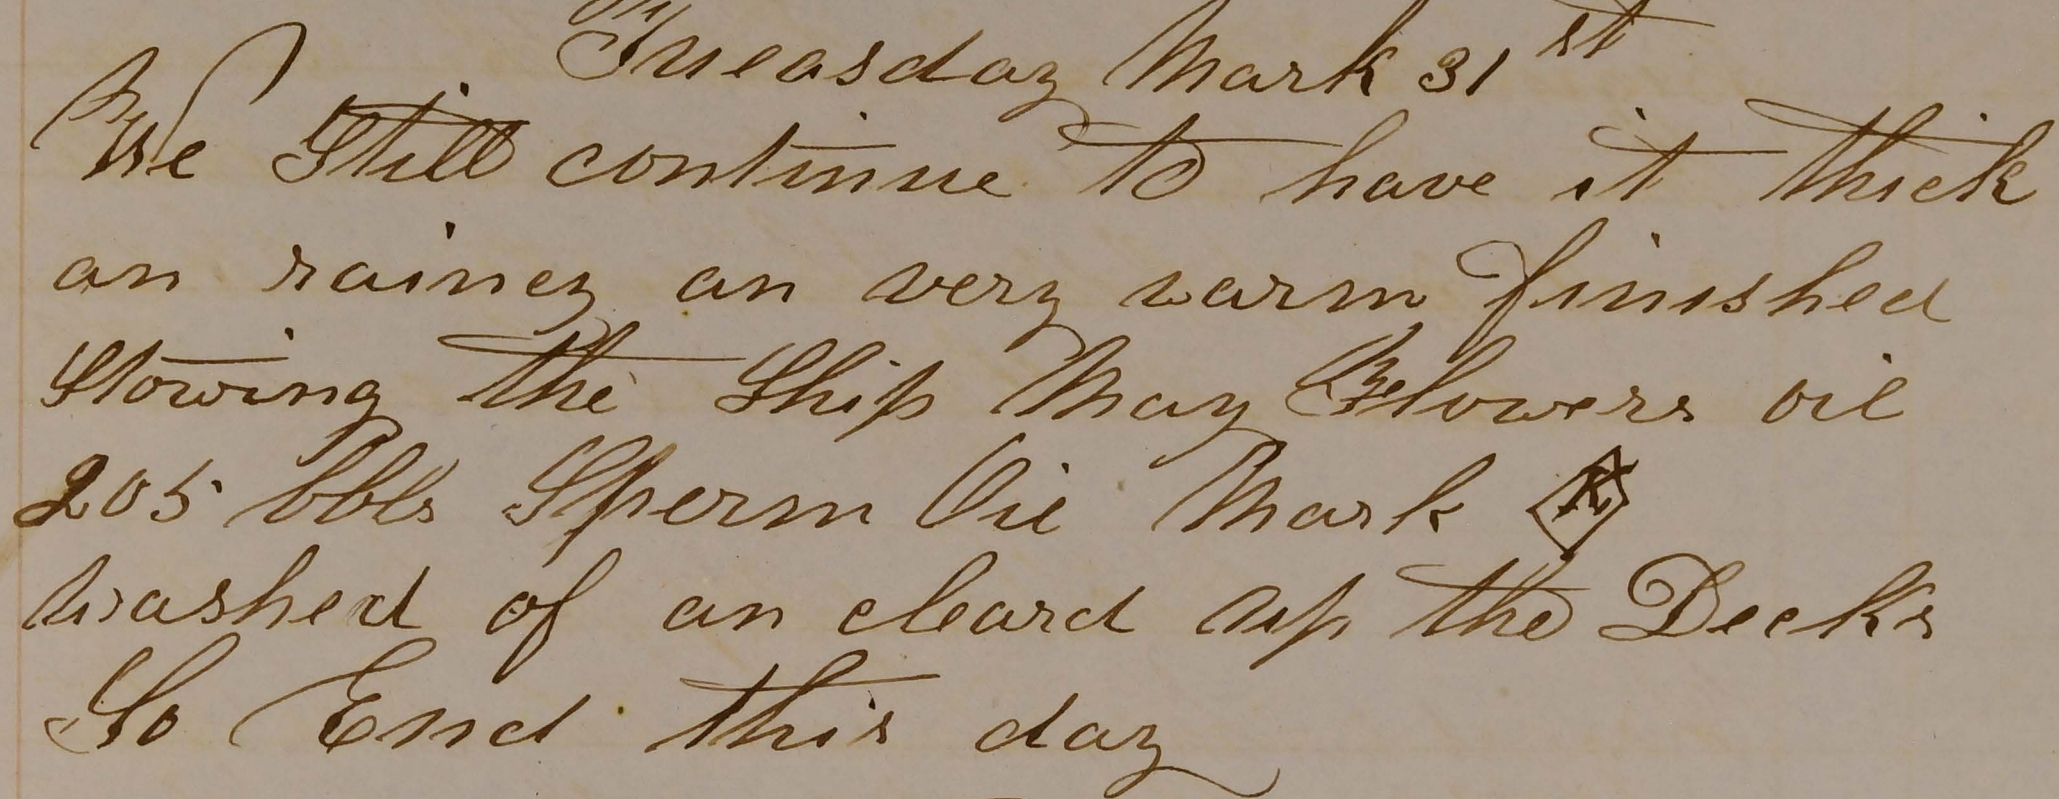 Tueasday Mark 31st
We Still continue to have it thick
an rainey an very warm finished
Stowing the Ship May Flowers oil
205 bbls Sperm Oil Mark
washed of an cleard up the Decks
So End this day